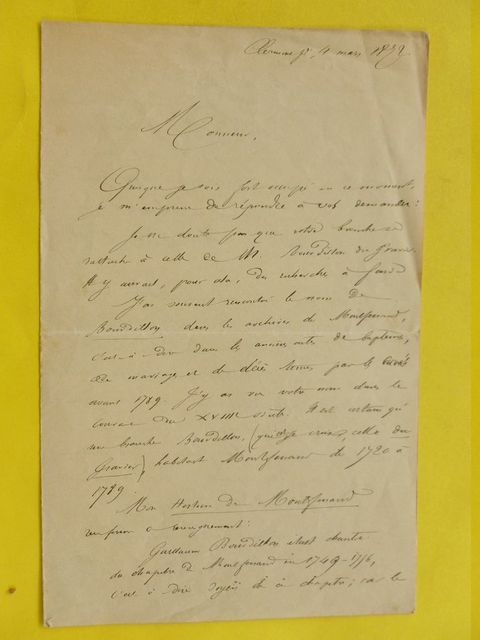 4 mars
Monsieur,
Quoique je sois fort occupé en ce moment,
je m'empresse de répondre à vos demandes :
Je ne doute pas que votre branche se
rattache à celle de M. Bourdillon du
Il y aurait, pour cela, des recherches à faire
J'ai souvent rencontré le nom de
Bourdillon dans les archives de Montferrand,
c'est-à-dire dans les anciens actes de baptême,
de mariage et de décès tenus par les curés
avant 1789. J'y ai vu votre nom dans le
courant du XVIIIe siècle. Il est certain qu'
une branche Bourdillon, (que je crois, celle du
Gravier), habitait Montferrand de 1720 à
1789.
Mon Histoire de Montferrand
ce renseignement :
Guillaume Bourdillon était chantre
du chapitre de Montferrand en 1749-1756,
c'est à dire doyen de ce chapitre ; car le